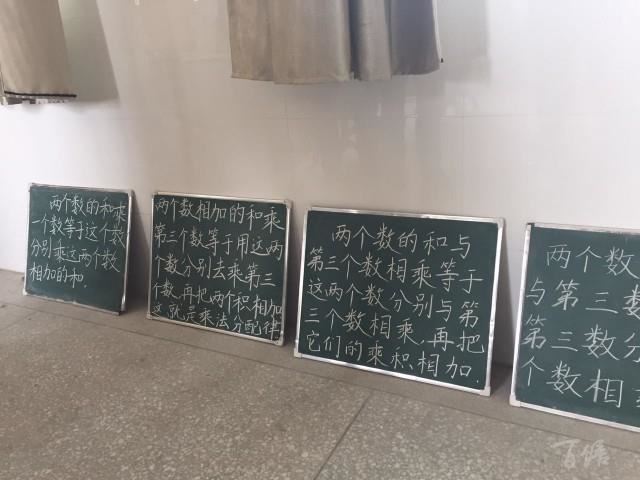 两个数的和乘
一个数等于这个数
分别乘这两个数
相加的和.
两个数相加的和乘
第三个数等于用这两
个数分别去乘第三
个数,再把两个积相加
这就是乘法分配律
两个数的和与
第三个数相乘等于
这两个数分别与第
三个数相乘,再把
它们的乘积相加.
两个数
与第三数
第三数分
个数相乘